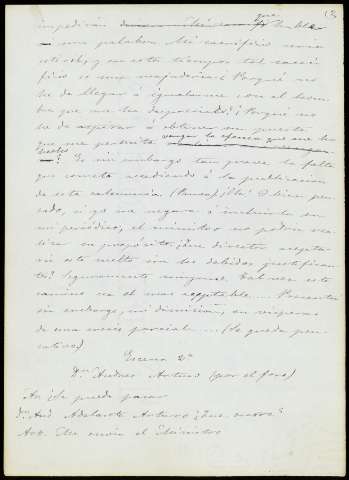 impedirán que hable
una palabra. Mi sacrificio seria
esteril, y en estos tiempos tal sacri-
ficio es una majaderia. ¿Porqué no
he de llegar á igualarme con el hom-
bre que me ha despreciado? ¿Porqué no
he de aspirar á obtener un puesto
que me permita vengar la ofensa que me ha
hecho? Es sin embargo tan grave la falta
que cometo accediendo á la publicacion
de esta calumnia. (Pausa) ¡Ah! Si bien pen-
sado, si yo me negara á incluirla en
mi periódico, el ministro no podria rea-
lizar su propósito; ¿Que director acepta-
ria este suelto sin los debidos justifican-
tes? Seguramente ninguno. Tal vez este
camino es el mas aceptable.... Presentar
sin embargo, mi dimision, en visperas
de una crisis parcial.... (Se queda pen-
sativo)
Escena 2ª
Dn. Andres Arturo (por el foro)
Ar. ¿Se puede pasar
Dn. And. Adelante Arturo ¿Que ocurre?
Art. Me envia el Ministro